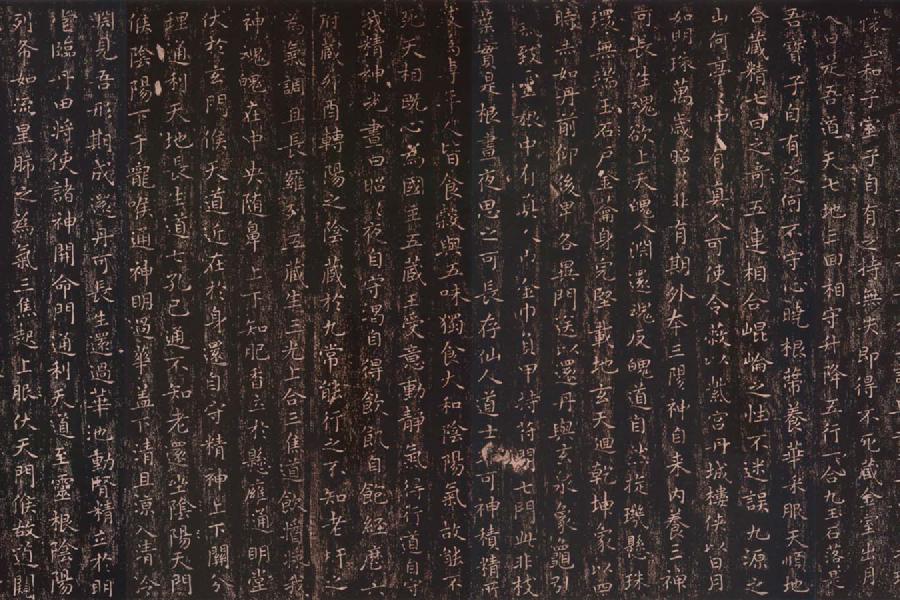 懷玉和子室子自有之持無失即得不死藏金室出月
入日是吾道天七地三回相守升降五行一合九玉石落落是
吾寶子自有之何不守心曉根蔕養華采服天順地
合藏精七日之奇五連相合崐崘之性不迷誤九源之
山何亭亭中有真人可使令蔽以紫宮丹城樓俠以日月
如明珠萬歲昭昭非有期外本三陽神自來內養三神
可長生魂欲上天魄入淵還魂反魄道自然旋璣懸珠
環無端玉石戶金籥身完堅載地玄天迴乾坤象以四
時赤如丹前仰後卑各異門送以還丹與玄泉象龜引
氣致靈根中有真人巾金巾負甲持符開七門此非枝
葉實是根晝夜思之可長存仙人道士非可神積精所
致為專年人皆食穀與五味獨食大和陰陽氣故能不
死天相既心為國主五藏王受意動靜氣得行道自守
我精神光晝日昭昭夜自守渴自得飲飢自飽經歷六
府藏卯酉轉陽之陰藏於九常能行之不知老肝之
為氣調且長羅列五藏生三光上合三焦道飲醬漿我
神魂魄在中央隨鼻上下知肥香立於懸膺通明堂
伏於玄門候天道近在於身還自守精神上下開分
理通利天地長生道七孔已通不知老還坐陰陽天門
候陰陽下于嚨喉通神明過華蓋下清且涼入清泠
淵見吾形期成還丹可長生還過華池動腎精立於明
堂臨丹田將使諸神開命門通利天道至靈根陰陽
列布如流星肺之為氣三焦起上服伏天門候故道闚